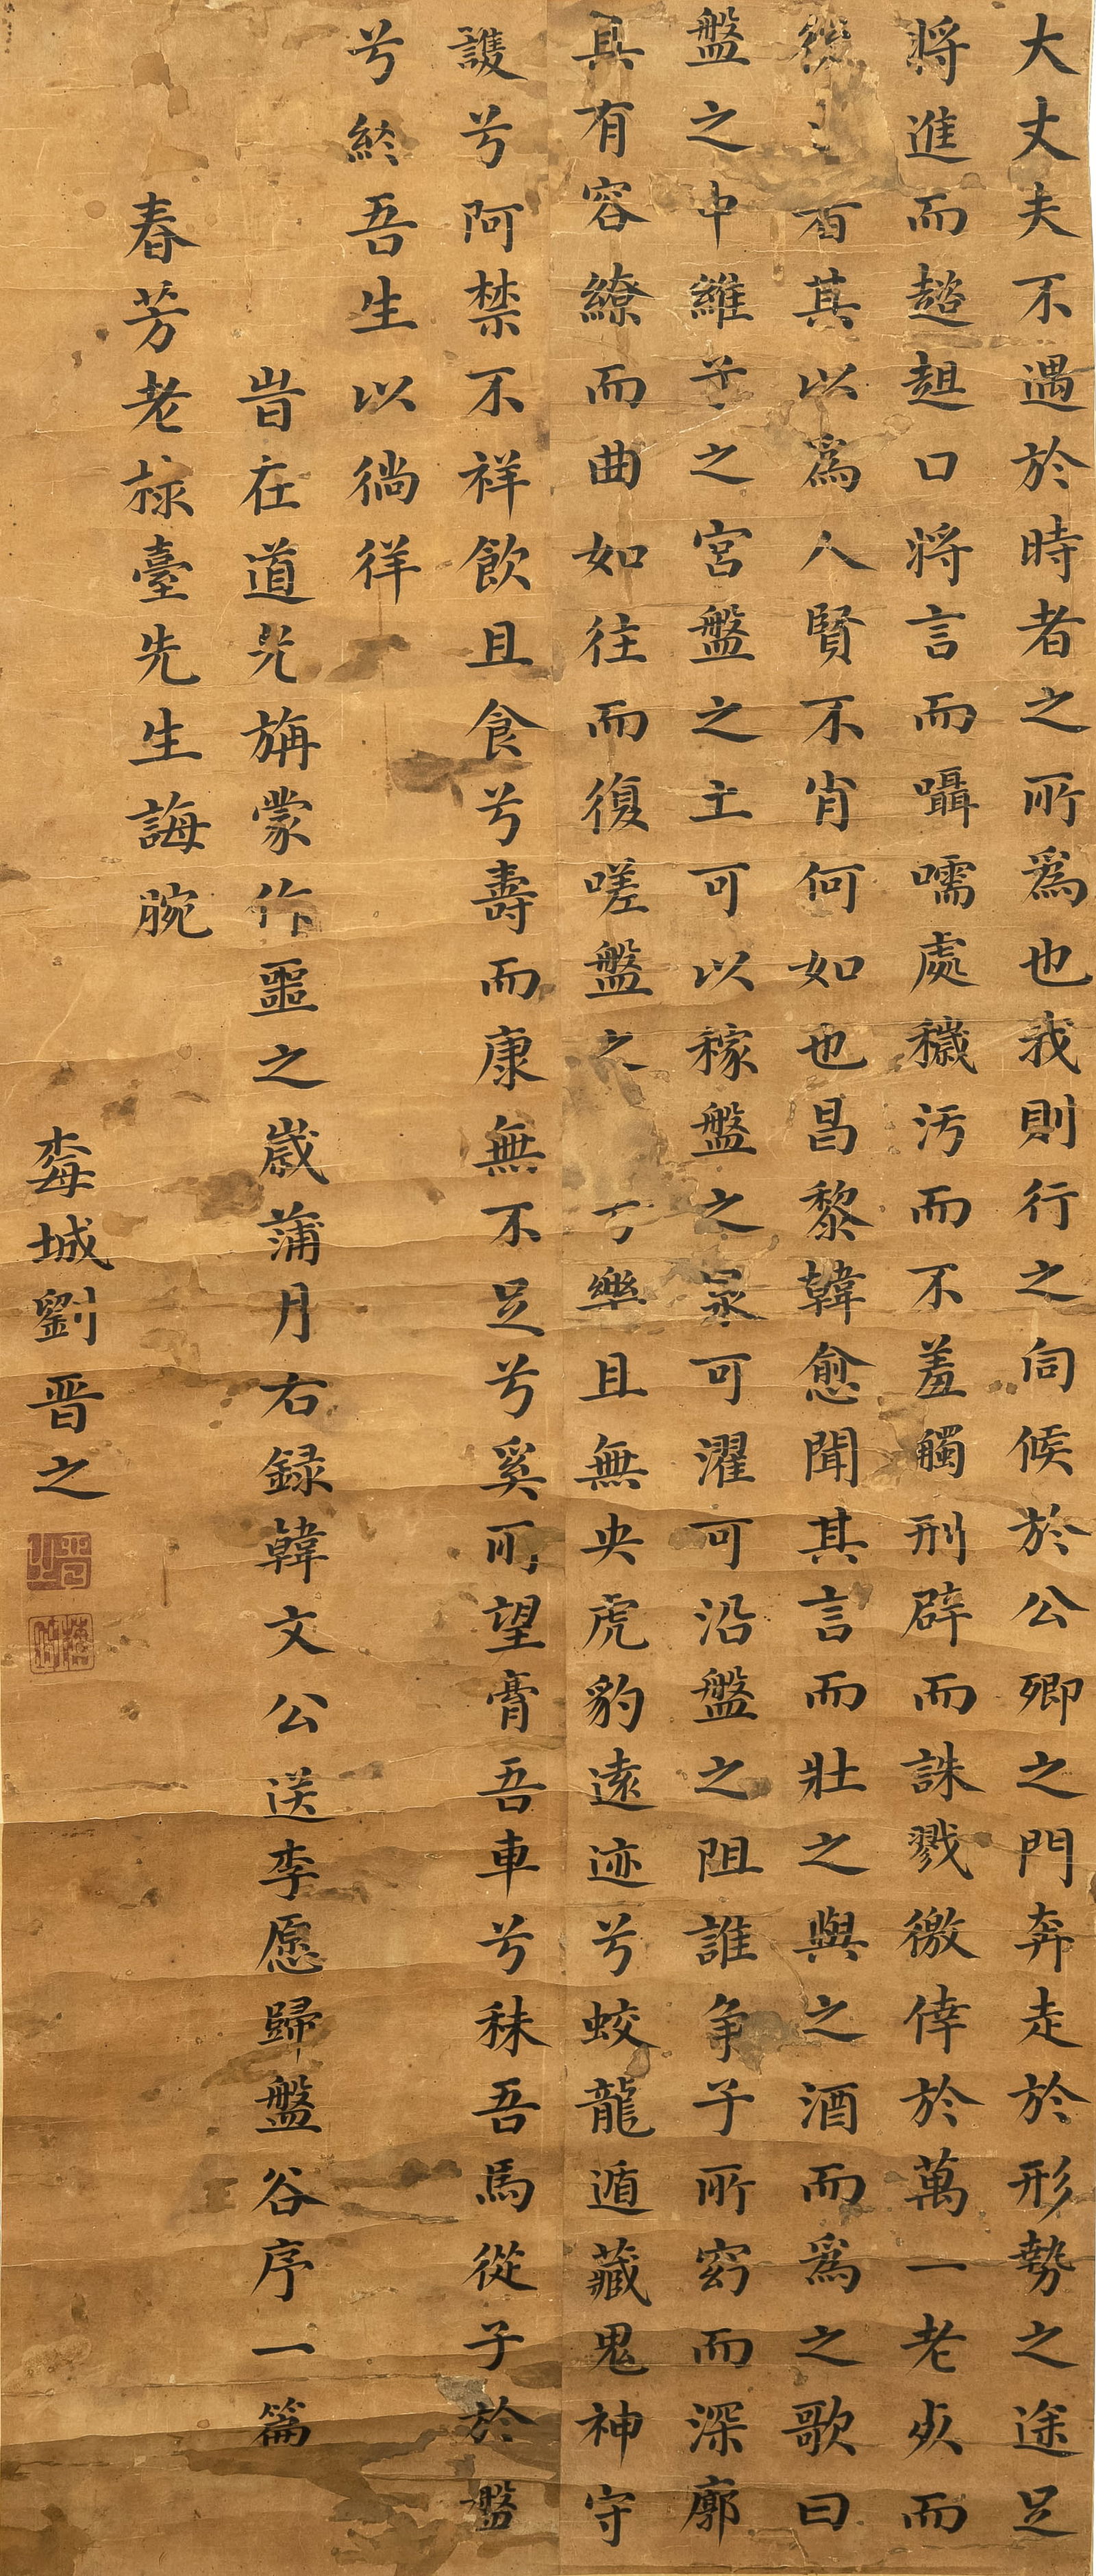 大丈夫不遇於時者之所爲也我則行之伺候於公卿之門奔走於形勢之途足
將進而趑趄口將言而囁嚅處穢汚而不羞觸刑辟而誅戮徼倖於萬一老死而
後有其以爲人賢不肖何如也昌黎韓愈聞其言而壯之與之酒而爲之歌曰
盤之中維子之宮盤之土可以稼盤之泉可濯可沿盤之阻誰爭子所窈而深廓
其有容繚而曲如往而復嗟盤之兮樂且無央虎豹遠迹兮蛟龍遁藏鬼神守
護兮呵禁不祥飲且食兮壽而康無不足兮奚所望膏吾車兮秣吾馬從子於盤
兮終吾生以徜徉
旹在道光旃蒙作噩之歲蒲月右録韓文公送李愿歸盤谷序一篇
春芳老祿臺先生誨腕
城劉晋之